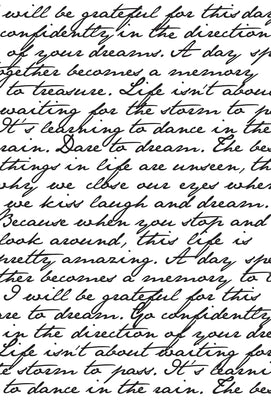 I will be grateful for this day
confidently in the direction
of your dreams. A day spe
together becomes a memory
to treasure. Life isn't about
waiting for the storm to p
It's learning to dance in the
rain. Dare to dream. The bes
things in life are unseen, th
why we close our eyes when
we kiss laugh and dream.
Because when you stop and
look around, this life is
pretty amazing. A day spe
ther becomes a memory to t
I will be grateful for this
re to dream. Go confidently
in the direction of your dre
Life isn't about waiting for
t storm to pass. It's learni
to dance in the rain. The bes